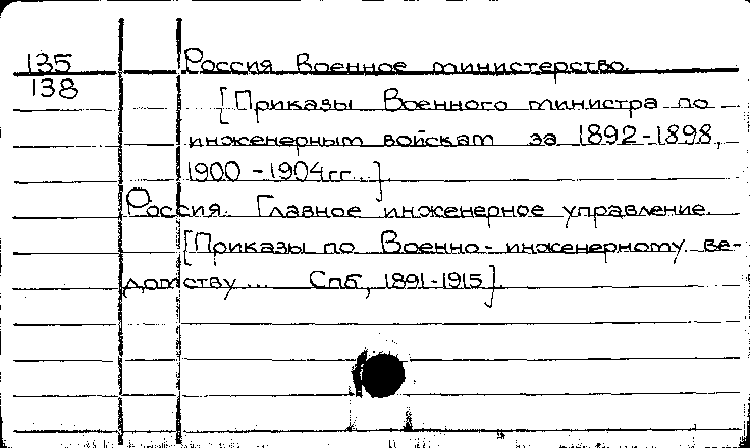 135 Россия Военное министерство.
138 [Приказы Военного министра по
инженерным войскам за 1892-1898,
1900-1904гг...]
Россия. Главное инженерное управление.
[Приказы по Военно-инженерному ве-
домству... Спб, 1891-1915].